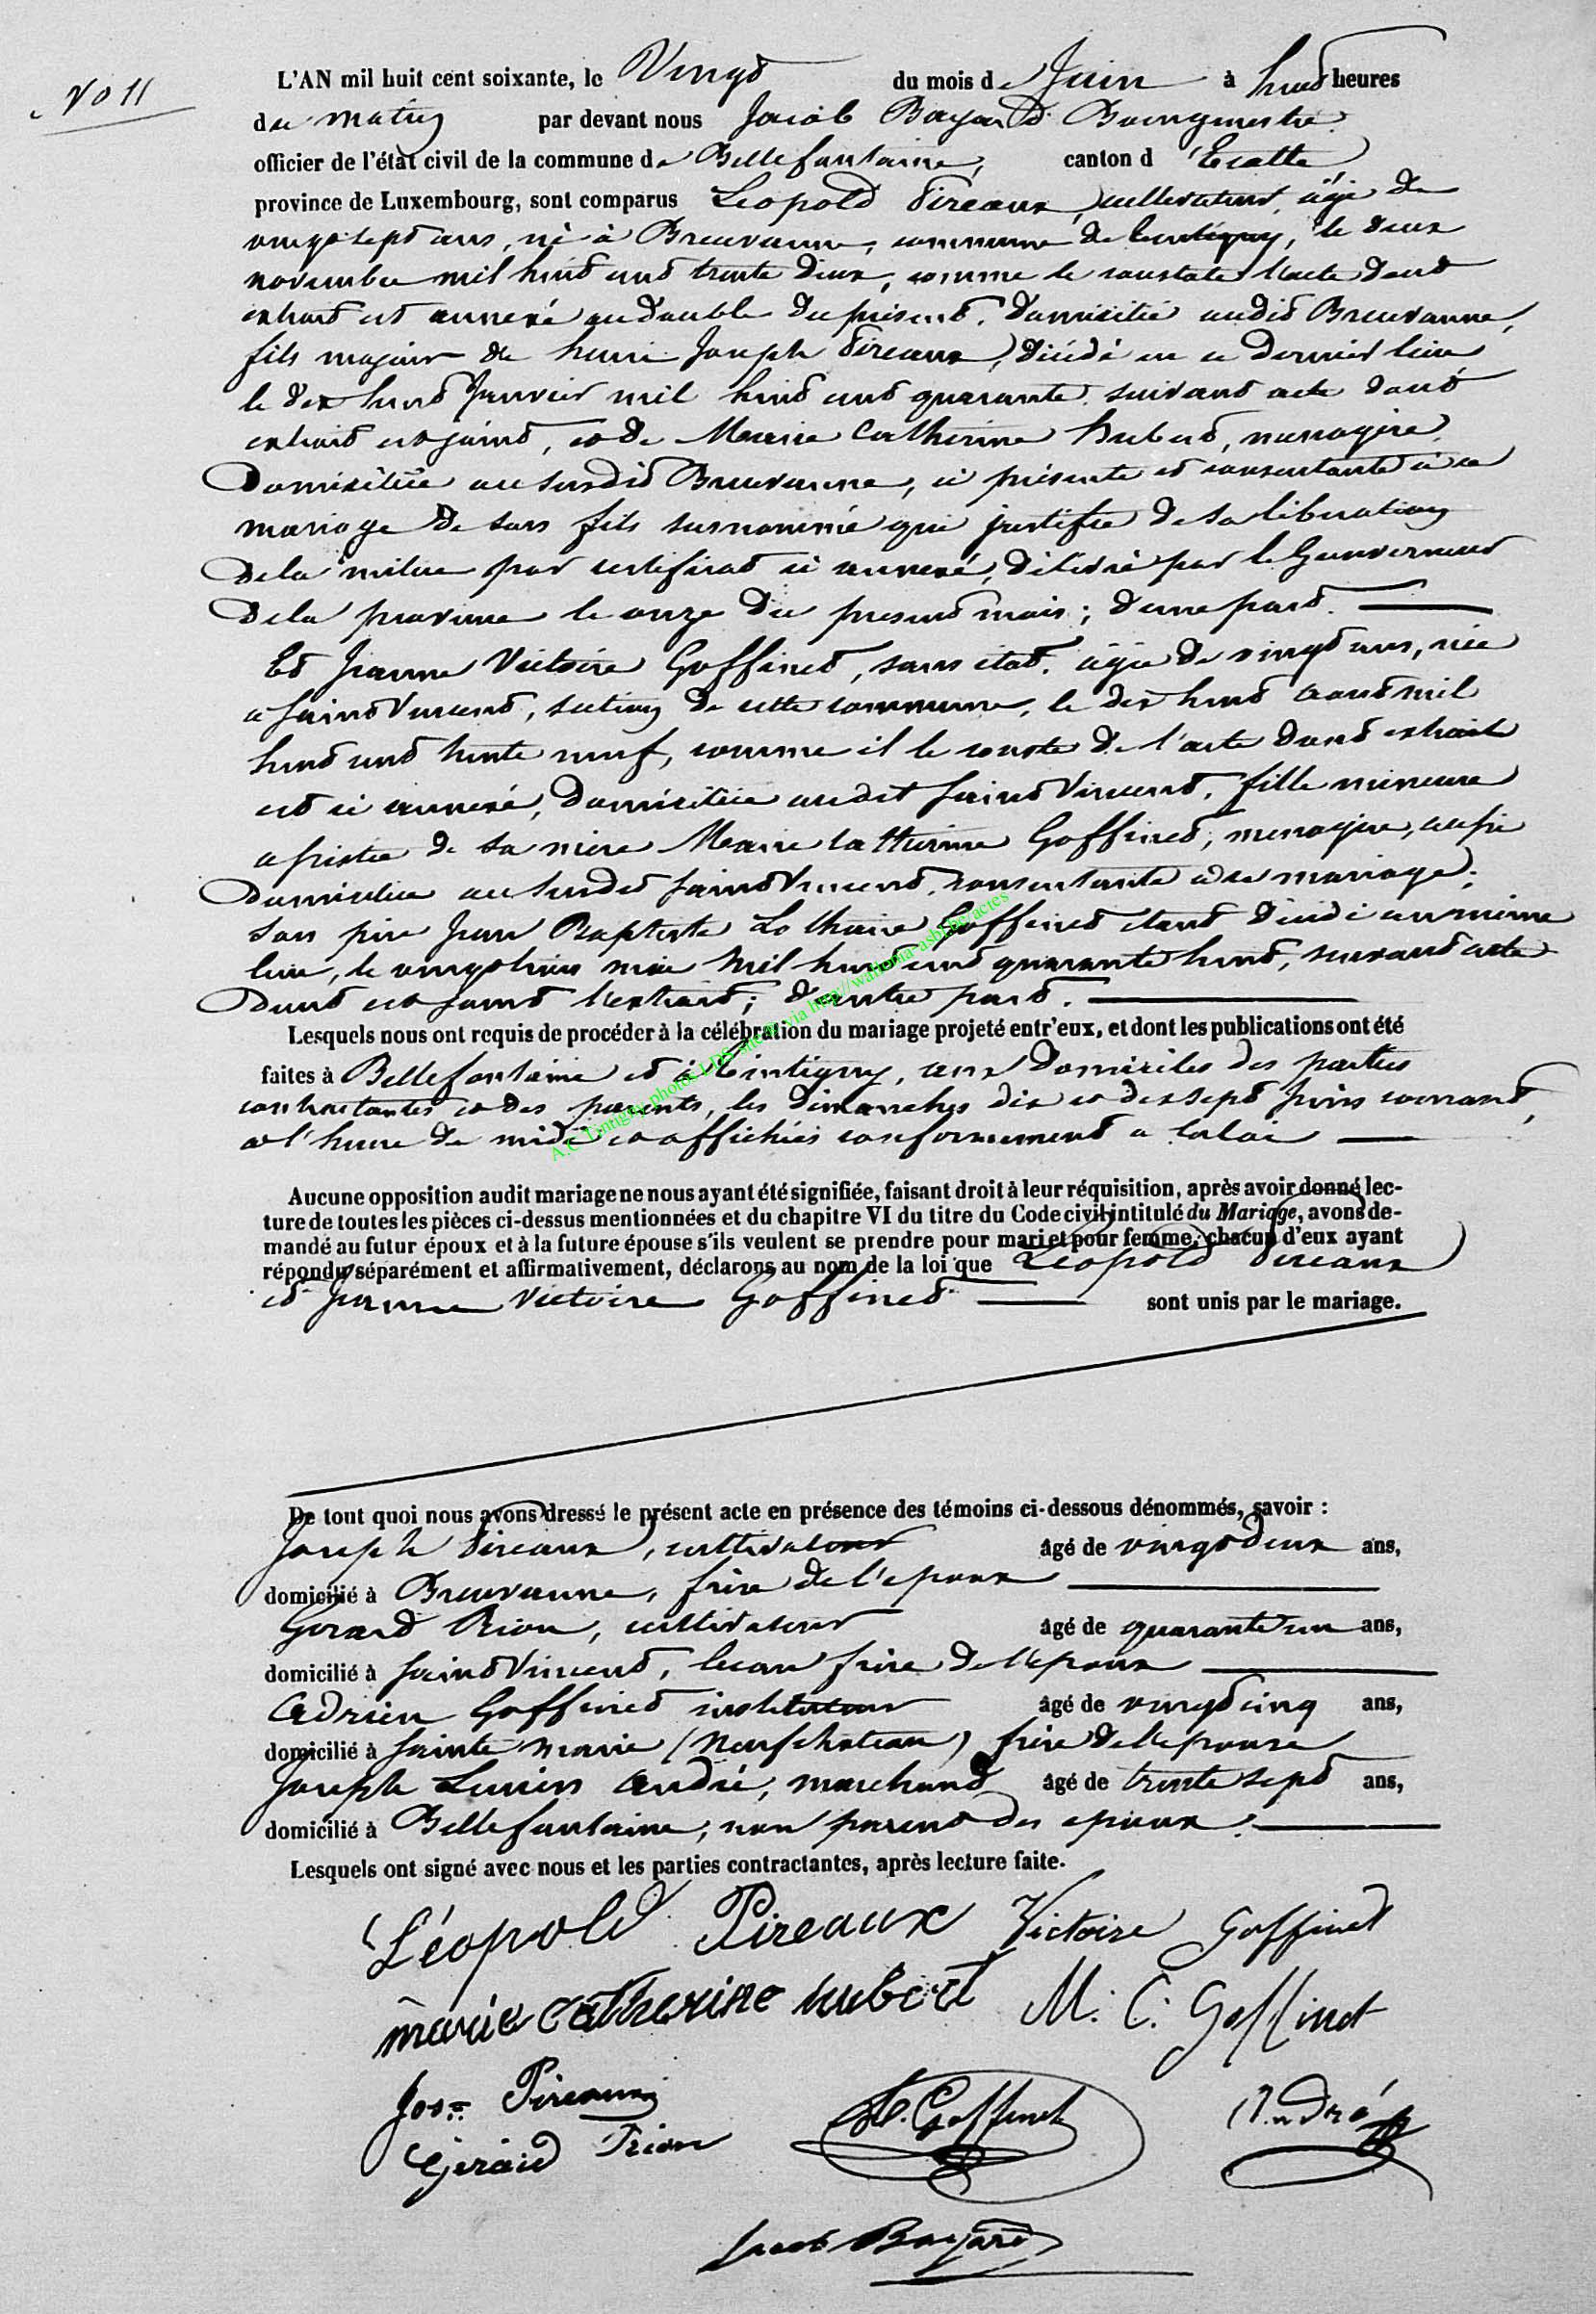 No 11
L'AN mil huit cent soixante, le Vingt du mois de Juin à huit heures
du matin par devant nous Jacob Bayard Bourgmestre
officier de l'état civil de la commune de Bellefontaine, canton d'Etalle
province de Luxembourg, sont comparus Leopold Pireaux, cultivateur, agé de
vingt sept ans, né à Breuvanne, commune de tintigny, le deux
novembre mil huit cent trente deux, comme le constate l'acte dont
extrait est annexé au double du présent, domicilié audit Breuvanne,
fils majeur de henri Joseph Pireaux, décédé en ce dernier lieu
le dix huit Janvier mil huit cent quarante suivant acte dont
extrait est joint, et de Marie Catherine hubert, menagère,
domiciliée au susdit Breuvanne, ci présente et consentante à ce
mariage de son fils susnommé qui justifie de sa libération
de la milice par certificat ci annexé, délivré par le Gouverneur
de la province le onze du present mois; d'une part.
Et Jeanne Victoire Goffinet, sans état, agée de vingt ans, née
a Saint Vincent, section de cette commune, le dix huit aout mil
huit cent trente neuf, comme il le conste de l'acte dont extrait
est ci annexé, domiciliée audit Saint Vincent, fille mineure
assistée de sa mère Marie Catherine Goffinet, menagère, aussi
domiciliée au susdit Saint Vincent, consentante à ce mariage;
son père Jean Baptiste Lothaire Goffinet étant décédé au même
lieu, le vingt trois mai mil huit cent quarante huit, suivant acte
dont est joint l'extrait; d'autre part.
Lesquels nous ont requis de procéder à la célébration du mariage projeté entr'eux, et dont les publications ont été
faites à Bellefontaine et à tintigny, aux domiciles des parties
contractantes et des parents, les dimanches dix et dix sept Juin courant,
à l'heure de midi et affichées conformement a la loi
Aucune opposition audit mariage ne nous ayant été signifiée, faisant droit à leur réquisition, après avoir donné lec-
ture de toutes les pièces ci-dessus mentionnées et du chapitre VI du titre du Code civil intitulé du Mariage, avons de-
mandé au futur époux et à la future épouse s'ils veulent se prendre pour mari et pour femme; chacun d'eux ayant
répondu séparément et affirmativement, déclarons au nom de la loi que Léopold Pireaux
et Jeanne Victoire Goffinet sont unis par le mariage.
De tout quoi nous avons dressé le présent acte en présence des témoins ci-dessous dénommés, savoir :
Joseph Pireaux, cultivateur âgé de vingt deux ans,
domicilié à Breuvanne, frère de l'epoux
Gerard Prion, cultivateur âgé de quarante un ans,
domicilié à Saint Vincent, beau frère de l'epoux
Adrien Goffinet instituteur âgé de vingt cinq ans,
domicilié à Sainte marie (Neufchateau) frère de l'epouse
Joseph Lucien André, marchand âgé de trente sept ans,
domicilié à Bellefontaine, non parent des epoux.
Lesquels ont signé avec nous et les parties contractantes, après lecture faite.
Léopold Pireaux Victoire Goffinet
marie catherine hubert M. C. Goffinet
Jos. Pireaux A. Goffinet André
Gérard Prion
Jacob Bayard
A.C Tintigny photos LDS site via http://wallonia-asbl.be/actes